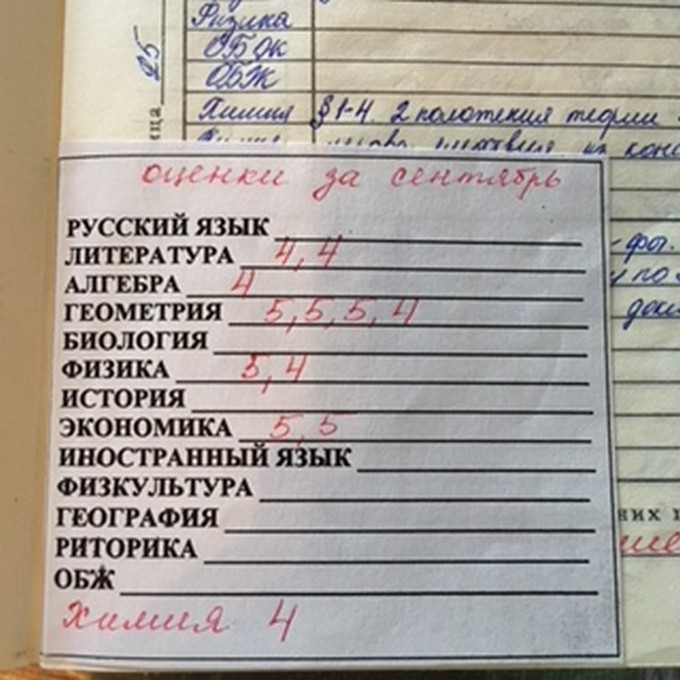 Физика
ОБОК
ОБЖ
Химия §1-4. 2 положения теории
25
оценки за сентябрь
РУССКИЙ ЯЗЫК
ЛИТЕРАТУРА 4, 4
АЛГЕБРА 4
ГЕОМЕТРИЯ 5, 5, 5, 4
БИОЛОГИЯ
ФИЗИКА 5, 4
ИСТОРИЯ
ЭКОНОМИКА 5, 5
ИНОСТРАННЫЙ ЯЗЫК
ФИЗКУЛЬТУРА
ГЕОГРАФИЯ
РИТОРИКА
ОБЖ
Химия 4